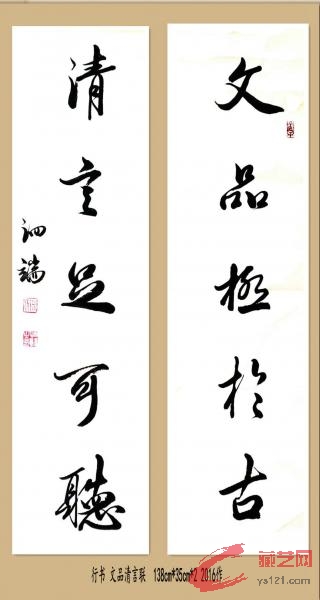 文品極於古
清言足可聽
泗端
行书 文品清言联 138cm*35cm*2 2016作
藏艺网
ys121.com